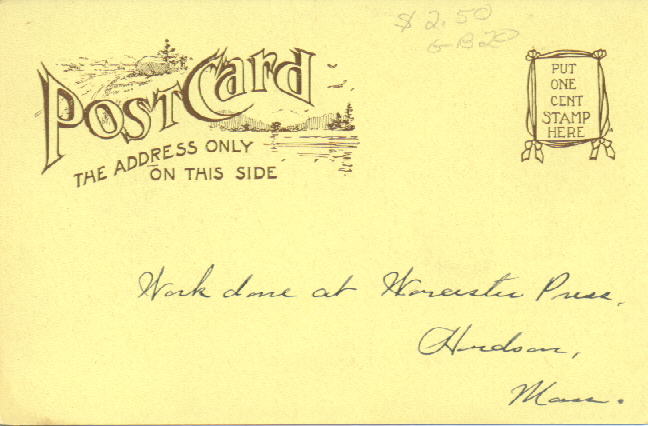 $ 2.50
G-B20
POST CARD
THE ADDRESS ONLY
ON THIS SIDE
PUT
ONE
CENT
STAMP
HERE
Work done at Worcester Press,
Hudson,
Mass.